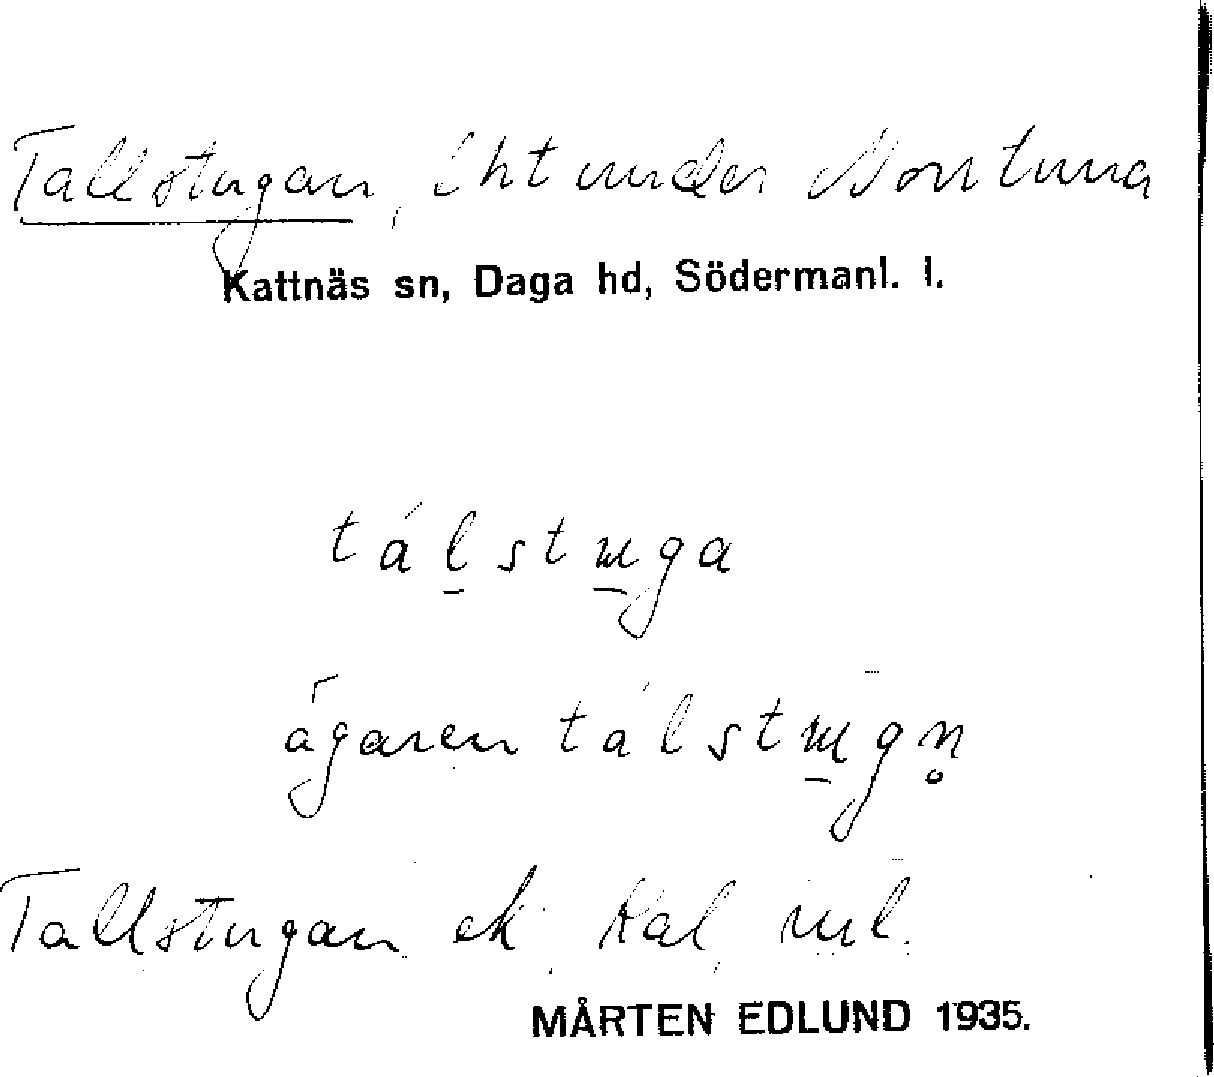 Tallstugan, lht under Norrtuna
Kattnäs sn, Daga hd, Södermanl. l.
tálstuga
ägaren tálstugn̥
Tallstugan ek.
MÅRTEN EDLUND 1935.